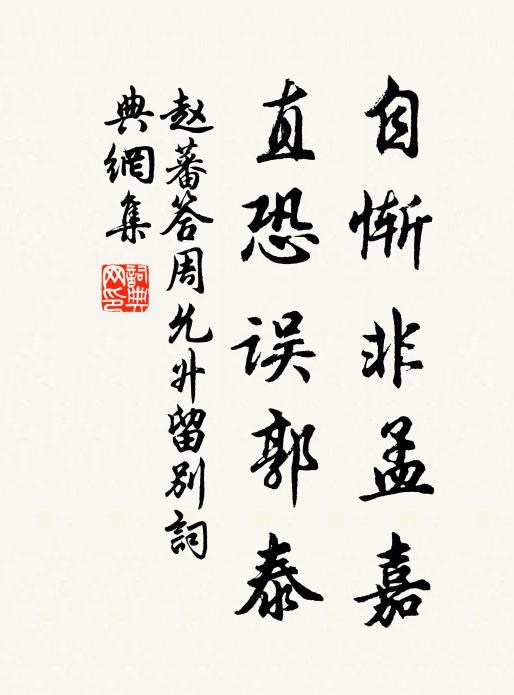 自惭非孟嘉
直恐误郭泰
赵蕃答周允升留别詞
典網集
詞典网印